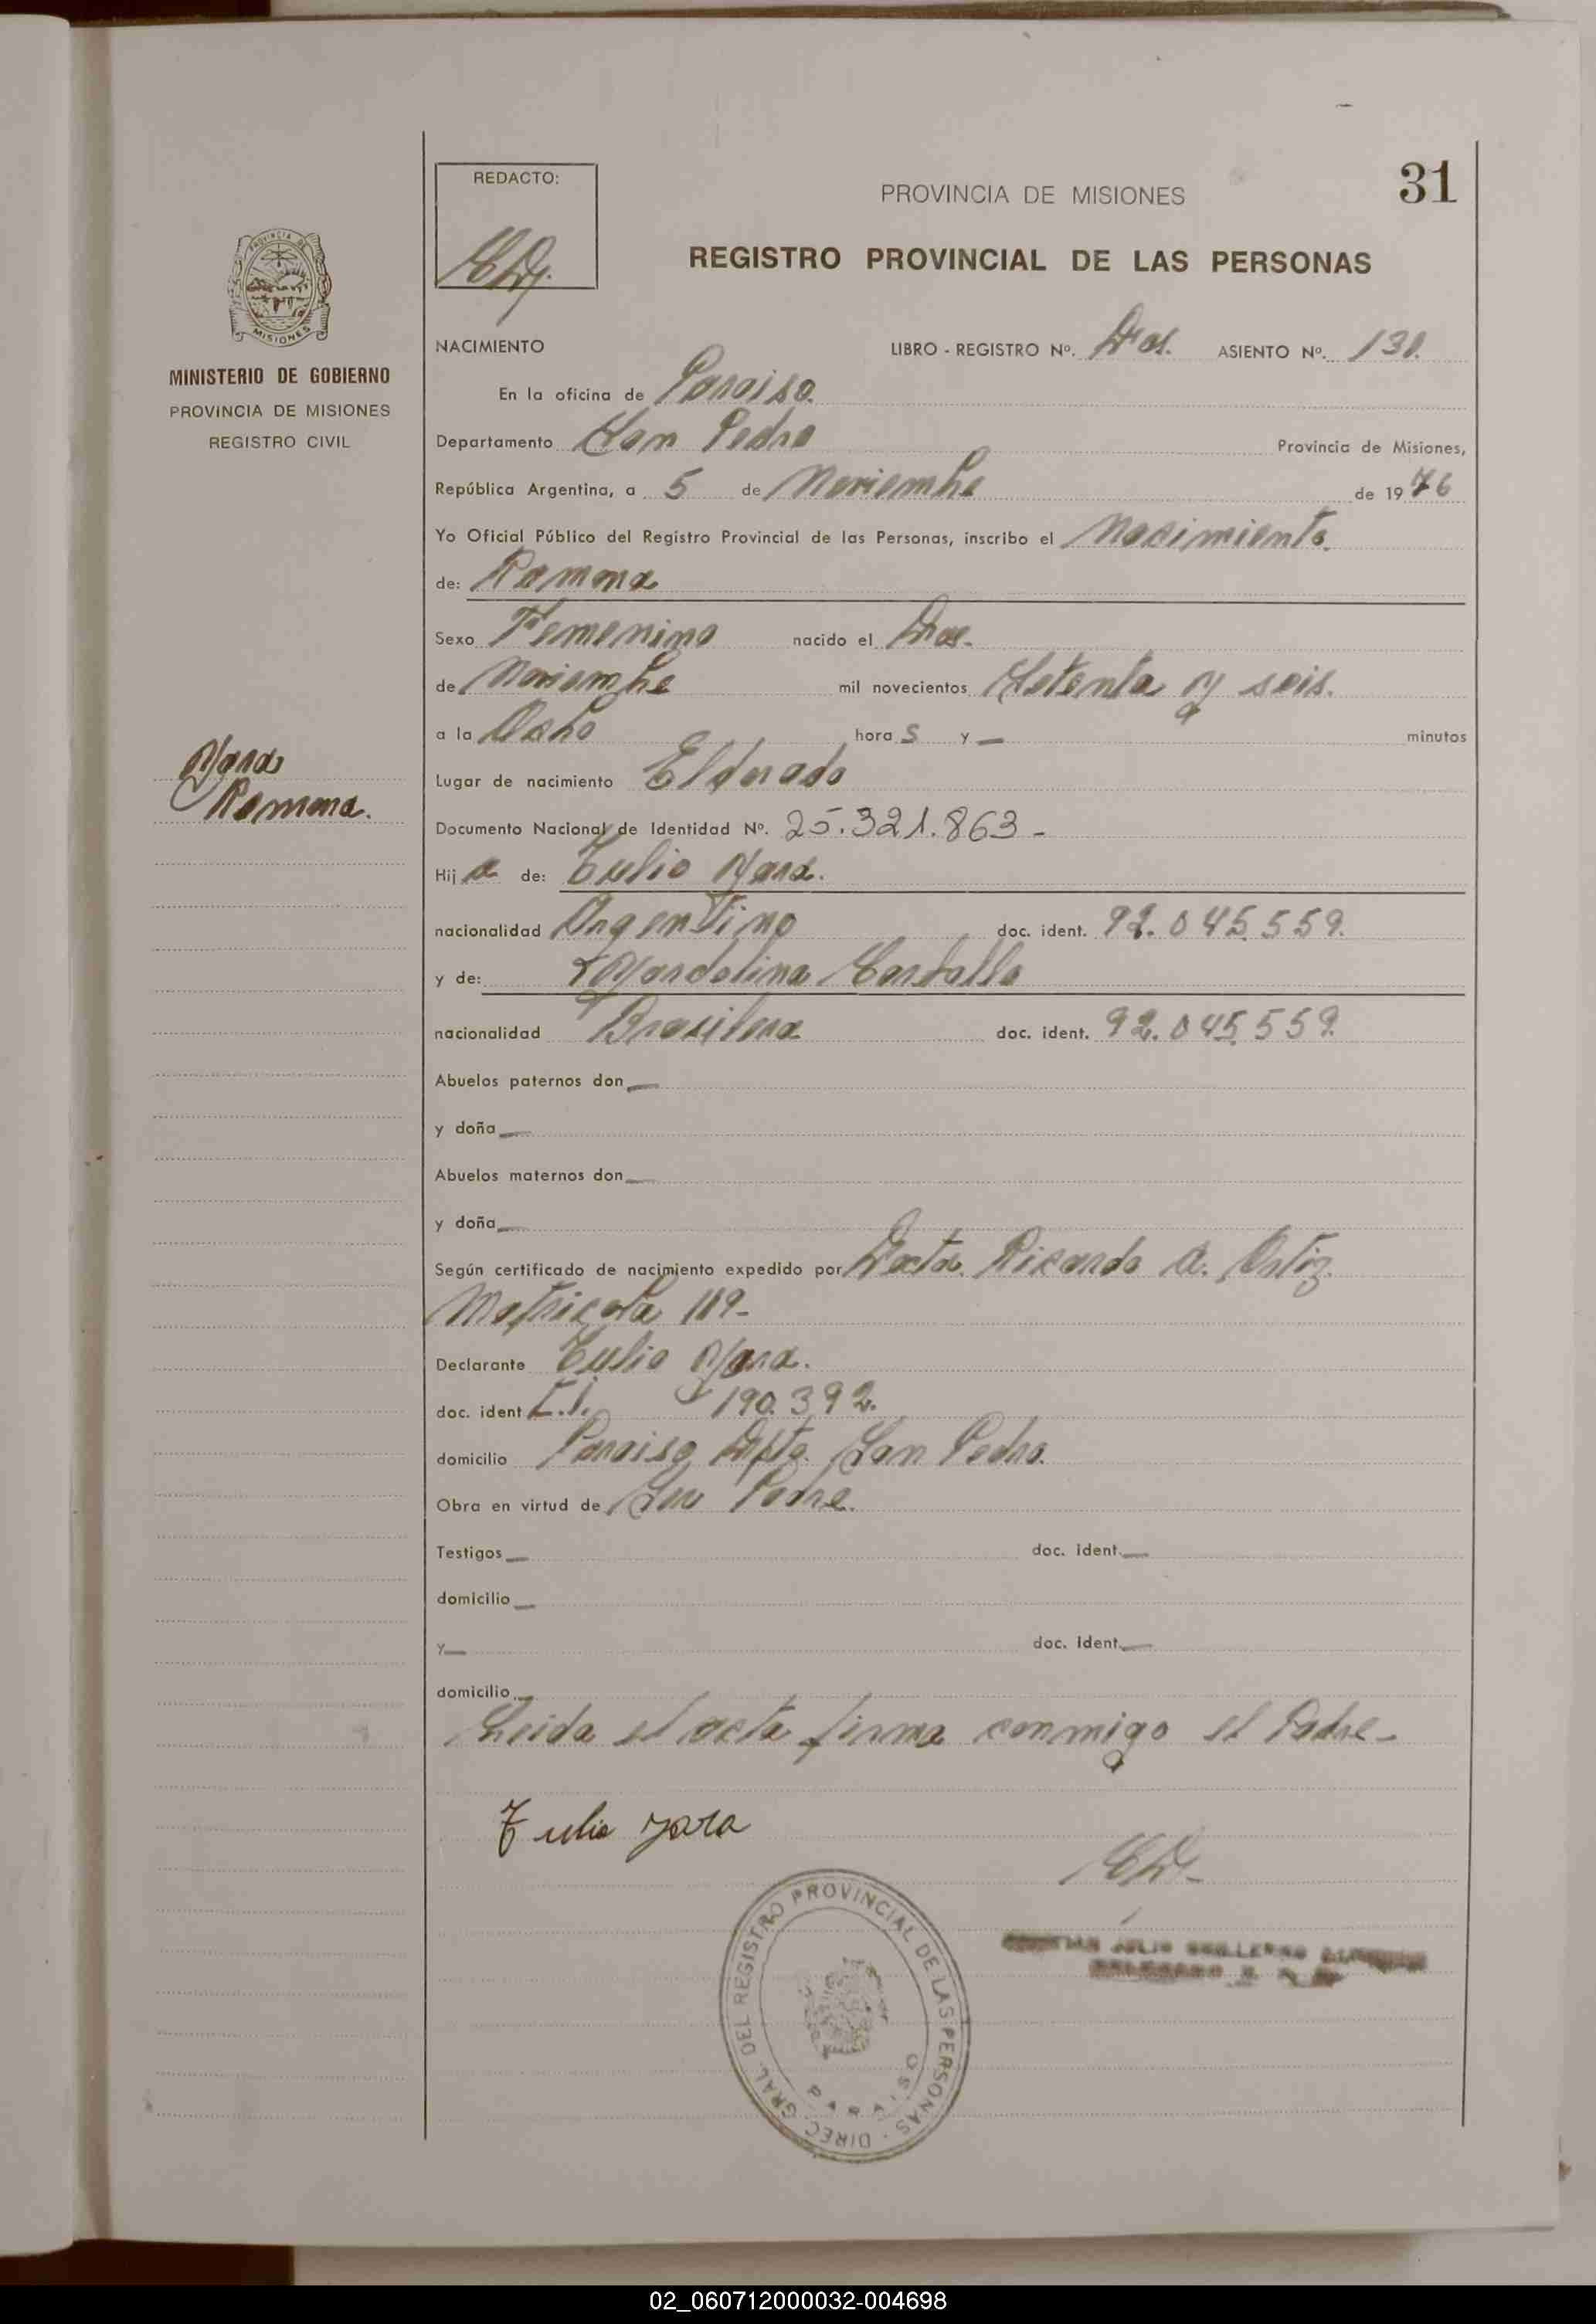 REDACTO:
31
PROVINCIA DE MISIONES
REGISTRO PROVINCIAL DE LAS PERSONAS
PROVINCIA DE
MISIONES
MINISTERIO DE GOBIERNO
PROVINCIA DE MISIONES
REGISTRO CIVIL
NACIMIENTO LIBRO - REGISTRO Nº. Dos. ASIENTO Nº. 131.
En la oficina de Paraiso.
Departamento San Pedro Provincia de Misiones,
República Argentina, a 5 de Noviembre de 1976
Yo Oficial Público del Registro Provincial de las Personas, inscribo el Nacimiento.
de: Ramona
Sexo Femenino nacido el Dos.
de Noviembre mil novecientos Setenta y seis.
a la Ocho hora s y — minutos
Yara
Ramona.
Lugar de nacimiento Eldorado
Documento Nacional de Identidad Nº. 25.321.863-
Hij a de: Tulio Yara.
nacionalidad Argentino doc. ident. 92.045.559.
y de: Castello
nacionalidad Brasilera doc. ident. 92.045.559.
Abuelos paternos don —
y doña —
Abuelos maternos don —
y doña —
Según certificado de nacimiento expedido por Doctor. Ricardo A. Ortiz.
Matricula 119-
Declarante Tulio Yara.
doc. ident 190.392.
domicilio Paraiso Dpto. San Pedro.
Obra en virtud de Ser Padre.
Testigos — doc. ident. —
domicilio —
y — doc. ident. —
domicilio —
Leida el acta firma conmigo el Padre-
Tulio yara
DIREC. GRAL. DEL REGISTRO PROVINCIAL DE LAS PERSONAS
PARAISO
JULIO GUILLERMO
02_060712000032-004698